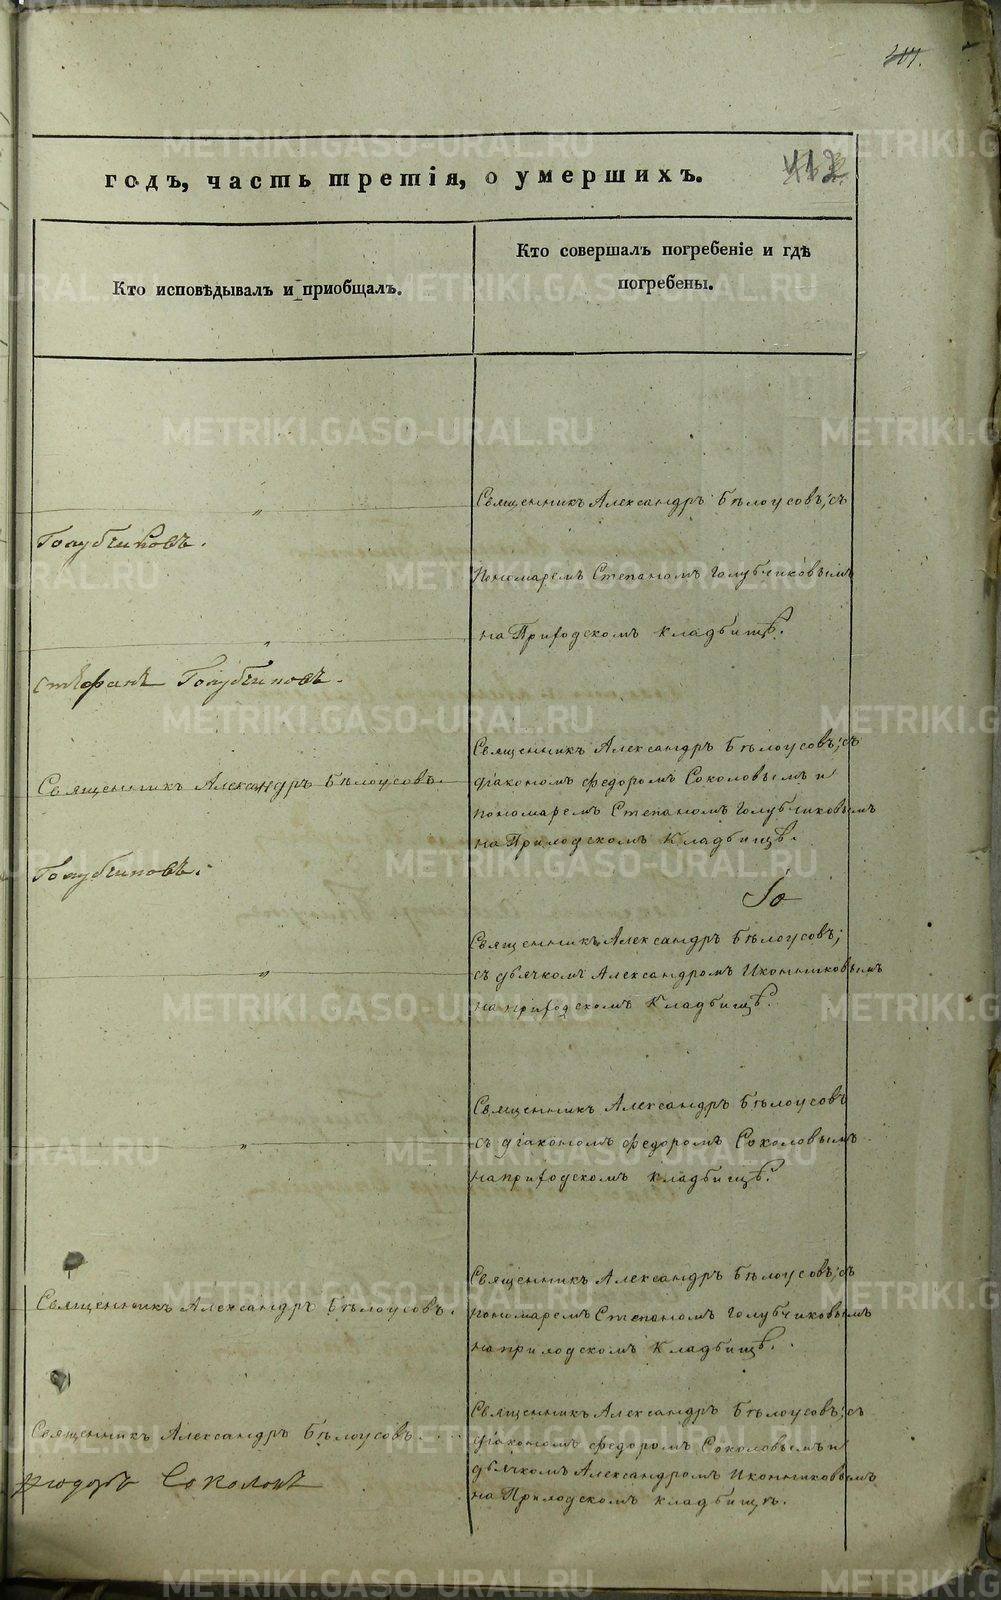 годъ, часть третія, о умершихъ.
412
Кто исповѣдывалъ и пріобщалъ.
Кто совершалъ погребеніе и гдѣ
погребены.
Священникъ Александръ Бѣлоусовъ; съ
Голубчиковъ.
Пономаремъ Степаномъ Голубчиковымъ
на Приходскомъ кладбищѣ.
Стефанъ Голубчиковъ.
Священникъ Александръ Бѣлоусовъ; съ
Священникъ Александръ Бѣлоусовъ.
діакономъ Федоромъ Соколовымъ и
пономаремъ Степаномъ Голубчиковымъ
на Приходскомъ Кладбищѣ.
Голубчиковъ.
Священникъ Александръ Бѣлоусовъ;
съ дьячкомъ Александромъ Иконниковымъ
на приходскомъ Кладбищѣ.
Священникъ Александръ Бѣлоусовъ
съ діакономъ Федоромъ Соколовымъ
на приходскомъ кладбищѣ.
Священникъ Александръ Бѣлоусовъ; съ
Священникъ Александръ Бѣлоусовъ.
пономаремъ Степаномъ Голубчиковымъ
на приходскомъ Кладбищѣ.
Священникъ Александръ Бѣлоусовъ; съ
Священникъ Александръ Бѣлоусовъ.
діакономъ Федоромъ Соколовымъ и
дьячкомъ Александромъ Иконниковымъ
Соколовъ
на Приходскомъ кладбищѣ.
METRIKI.GASO-URAL.RU